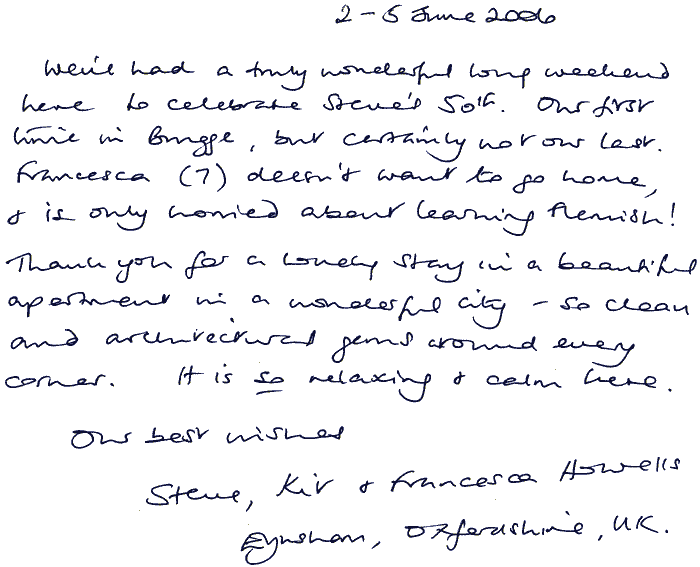 2-5 June 2006
We've had a truly wonderful long weekend
here to celebrate Steve's 50th. Our first
time in Brugge, but certainly not our last.
Francesca (7) doesn't want to go home,
& is only worried about learning Flemish!
Thank you for a lovely stay in a beautiful
apartment in a wonderful city - so clean
and architectural gems around every
corner. It is so relaxing & calm here.
Our best wishes
Steve, Kit & Francesca Howells
Eynsham, Oxfordshire, UK.